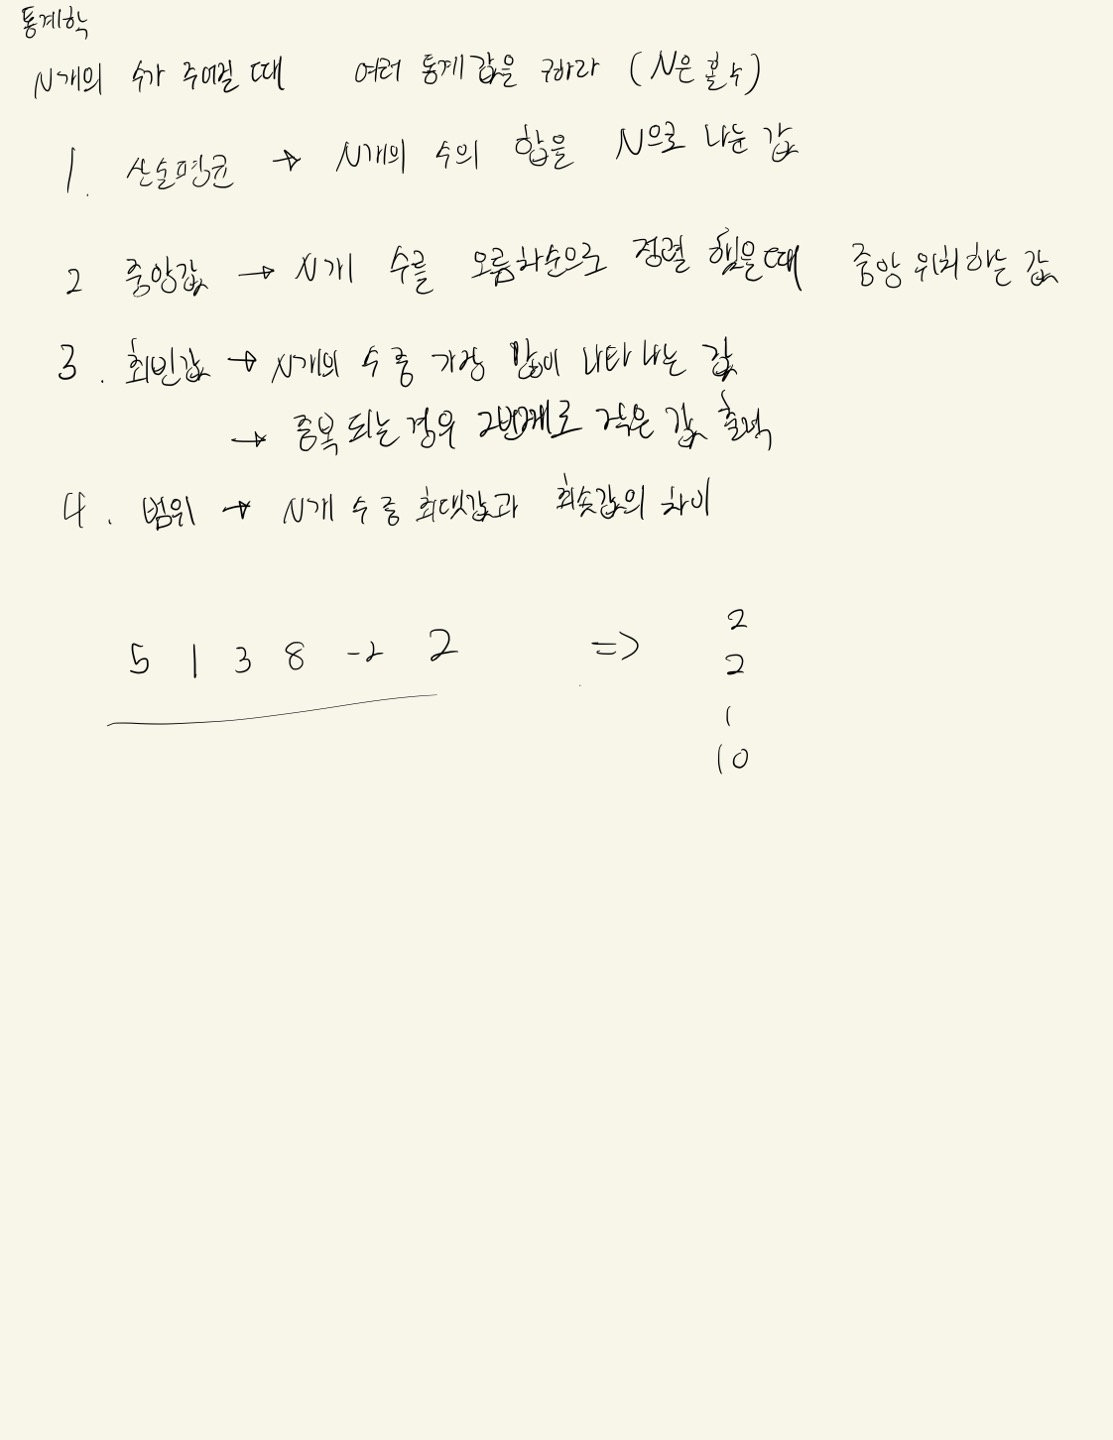 통계학
N개의 수가 주어질 때 여러 통계값을 구하라 (N은 홀수)
1. 산술평균 → N개의 수의 합을 N으로 나눈 값
2 중앙값 → N개 수를 오름차순으로 정렬 했을때 중앙 위치하는 값
3. 최빈값 → N개의 수 중 가장 많이 나타나는 값
→ 중복되는 경우 2번째로 작은 값 출력
4. 범위 → N개 수 중 최댓값과 최솟값의 차이
5 1 3 8 -2 2 => 2
2
1
10